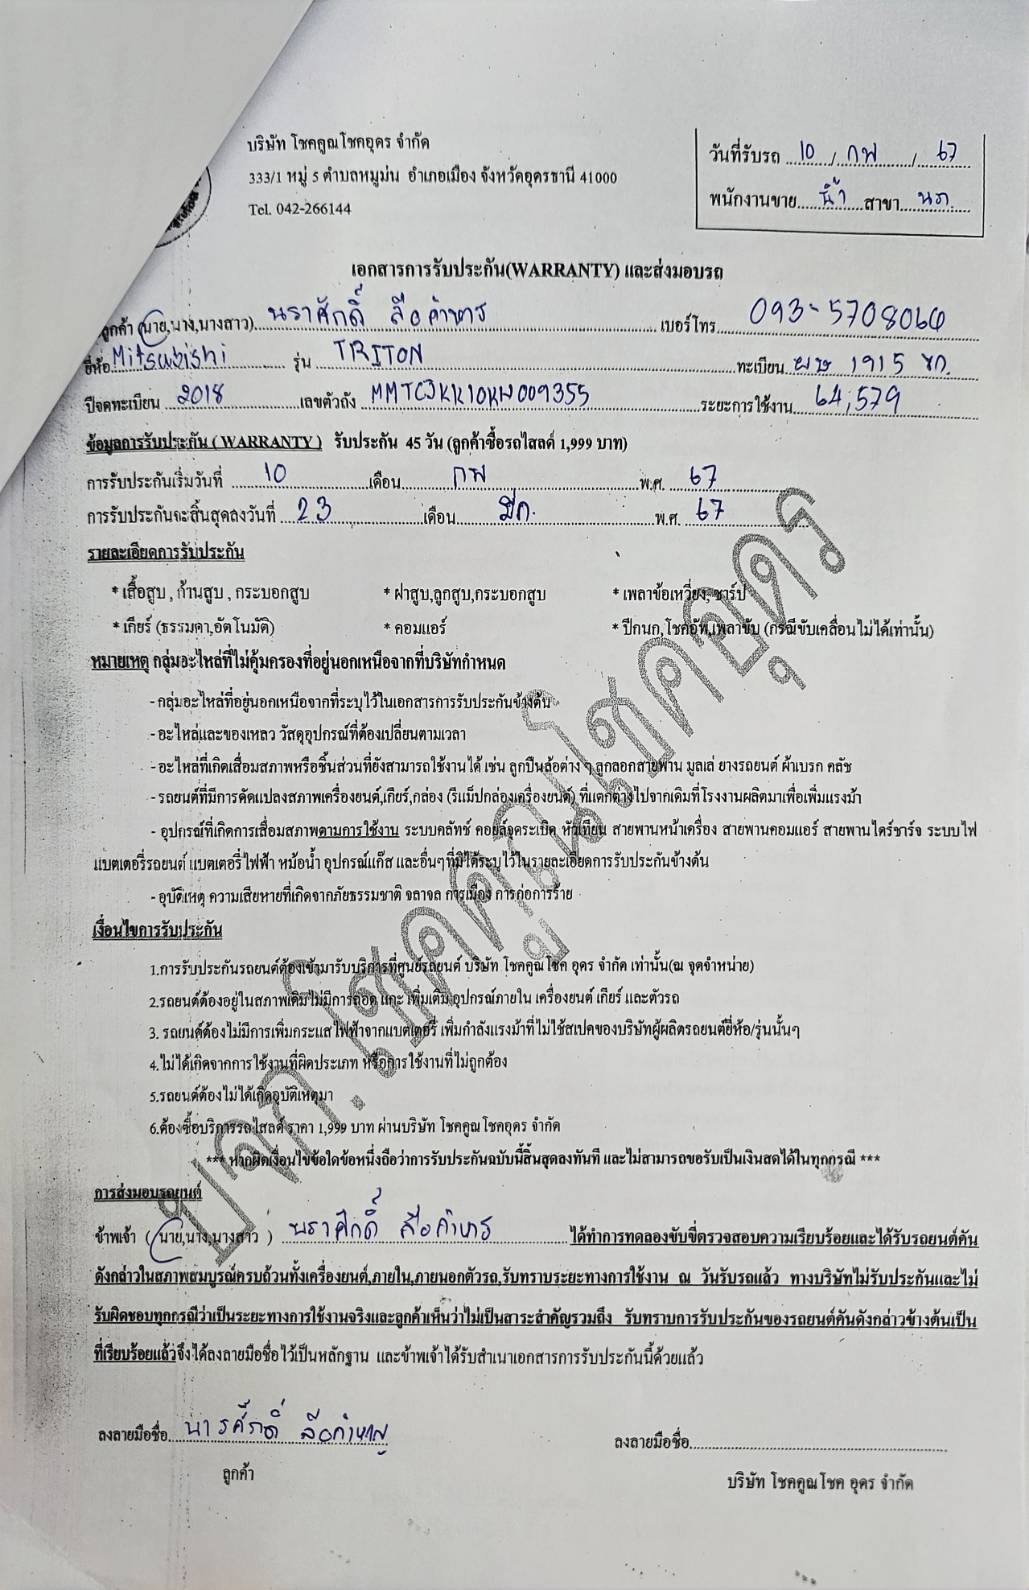 บริษัท โชคคูณโชคอุดร จำกัด
333/1 หมู่ 5 ตำบลหมูม่น อำเภอเมือง จังหวัดอุดรธานี 41000
Tel. 042-266144
วันที่รับรถ 10 / กพ / 67
พนักงานขาย น้ำ สาขา นภ
เอกสารการรับประกัน(WARRANTY) และส่งมอบรถ
ลูกค้า (นาย,นาง,นางสาว) นราศักดิ์ ลือคำหาร เบอร์โทร 093-5708064
ยี่ห้อ Mitsubishi รุ่น TRITON ทะเบียน ผษ 1915 ขก.
ปีจดทะเบียน 2018 เลขตัวถัง MMTCJKK10KH009355 ระยะการใช้งาน 64,579
ข้อมูลการรับประกัน ( WARRANTY ) รับประกัน 45 วัน (ลูกค้าซื้อรถไสลด์ 1,999 บาท)
การรับประกันเริ่มวันที่ 10 เดือน กพ พ.ศ. 67
การรับประกันจะสิ้นสุดลงวันที่ 23 เดือน มีค. พ.ศ. 67
รายละเอียดการรับประกัน
* เสื้อสูบ , ก้านสูบ , กระบอกสูบ * ฝาสูบ,ลูกสูบ,กระบอกสูบ * เพลาข้อเหวี่ยง, ชาร์ป
* เกียร์ (ธรรมดา,อัตโนมัติ) * คอมแอร์ * ปีกนก,โชคอัพ,เพลาขับ (กรณีขับเคลื่อนไม่ได้เท่านั้น)
หมายเหตุ กลุ่มอะไหล่ที่ไม่คุ้มครองที่อยู่นอกเหนือจากที่บริษัทกำหนด
- กลุ่มอะไหล่ที่อยู่นอกเหนือจากที่ระบุไว้ในเอกสารการรับประกันข้างต้น
- อะไหล่และของเหลว วัสดุอุปกรณ์ที่ต้องเปลี่ยนตามเวลา
- อะไหล่ที่เกิดเสื่อมสภาพหรือชิ้นส่วนที่ยังสามารถใช้งานได้ เช่น ลูกปืนล้อต่าง ๆ ลูกลอกสายพาน มูลเล่ ยางรถยนต์ ผ้าเบรก คลัช
- รถยนต์ที่มีการดัดแปลงสภาพเครื่องยนต์,เกียร์,กล่อง (รีแม็ปกล่องเครื่องยนต์) ที่แตกต่างไปจากเดิมที่โรงงานผลิตมาเพื่อเพิ่มแรงม้า
- อุปกรณ์ที่เกิดการเสื่อมสภาพตามการใช้งาน ระบบคลัทช์ คอยล์จุดระเบิด หัวเทียน สายพานหน้าเครื่อง สายพานคอมแอร์ สายพานไดร์ชาร์จ ระบบไฟ
แบตเตอรี่รถยนต์ แบตเตอรี่ไฟฟ้า หม้อน้ำ อุปกรณ์แก๊ส และอื่นๆที่มิได้ระบุไว้ในรายละเอียดการรับประกันข้างต้น
- อุบัติเหตุ ความเสียหายที่เกิดจากภัยธรรมชาติ จลาจล การเมือง การก่อการร้าย
เงื่อนไขการรับประกัน
1.การรับประกันรถยนต์ต้องเข้ามารับบริการที่ศูนย์รถยนต์ บริษัท โชคคูณโชค อุดร จำกัด เท่านั้น(ณ จุดจำหน่าย)
2.รถยนต์ต้องอยู่ในสภาพเดิมไม่มีการถอด แกะ เพิ่มเติม อุปกรณ์ภายใน เครื่องยนต์ เกียร์ และตัวรถ
3. รถยนต์ต้องไม่มีการเพิ่มกระแสไฟฟ้าจากแบตเตอรี่ เพิ่มกำลังแรงม้าที่ไม่ใช้สเปคของบริษัทผู้ผลิตรถยนต์ยี่ห้อ/รุ่นนั้นๆ
4.ไม่ได้เกิดจากการใช้งานที่ผิดประเภท หรือการใช้งานที่ไม่ถูกต้อง
5.รถยนต์ต้องไม่ได้เกิดอุบัติเหตุมา
6.ต้องซื้อบริการรถไสลด์ ราคา 1,999 บาท ผ่านบริษัท โชคคูณโชคอุดร จำกัด
*** หากผิดเงื่อนไขข้อใดข้อหนึ่งถือว่าการรับประกันฉบับนี้สิ้นสุดลงทันที และไม่สามารถขอรับเป็นเงินสดได้ในทุกกรณี ***
การส่งมอบรถยนต์
ข้าพเจ้า ( นาย,นาง,นางสาว ) นราศักดิ์ ลือคำหาร ได้ทำการทดลองขับขี่ตรวจสอบความเรียบร้อยและได้รับรถยนต์คัน
ดังกล่าวในสภาพสมบูรณ์ครบถ้วนทั้งเครื่องยนต์,ภายใน,ภายนอกตัวรถ,รับทราบระยะทางการใช้งาน ณ วันรับรถแล้ว ทางบริษัทไม่รับประกันและไม่
รับผิดชอบทุกกรณีว่าเป็นระยะทางการใช้งานจริงและลูกค้าเห็นว่าไม่เป็นสาระสำคัญรวมถึง รับทราบการรับประกันของรถยนต์คันดังกล่าวข้างต้นเป็น
ที่เรียบร้อยแล้วจึงได้ลงลายมือชื่อไว้เป็นหลักฐาน และข้าพเจ้าได้รับสำเนาเอกสารการรับประกันนี้ด้วยแล้ว
บจก.โชคคูณโชคอุดร
ลงลายมือชื่อ ลงลายมือชื่อ
ลูกค้า บริษัท โชคคูณโชค อุดร จำกัด